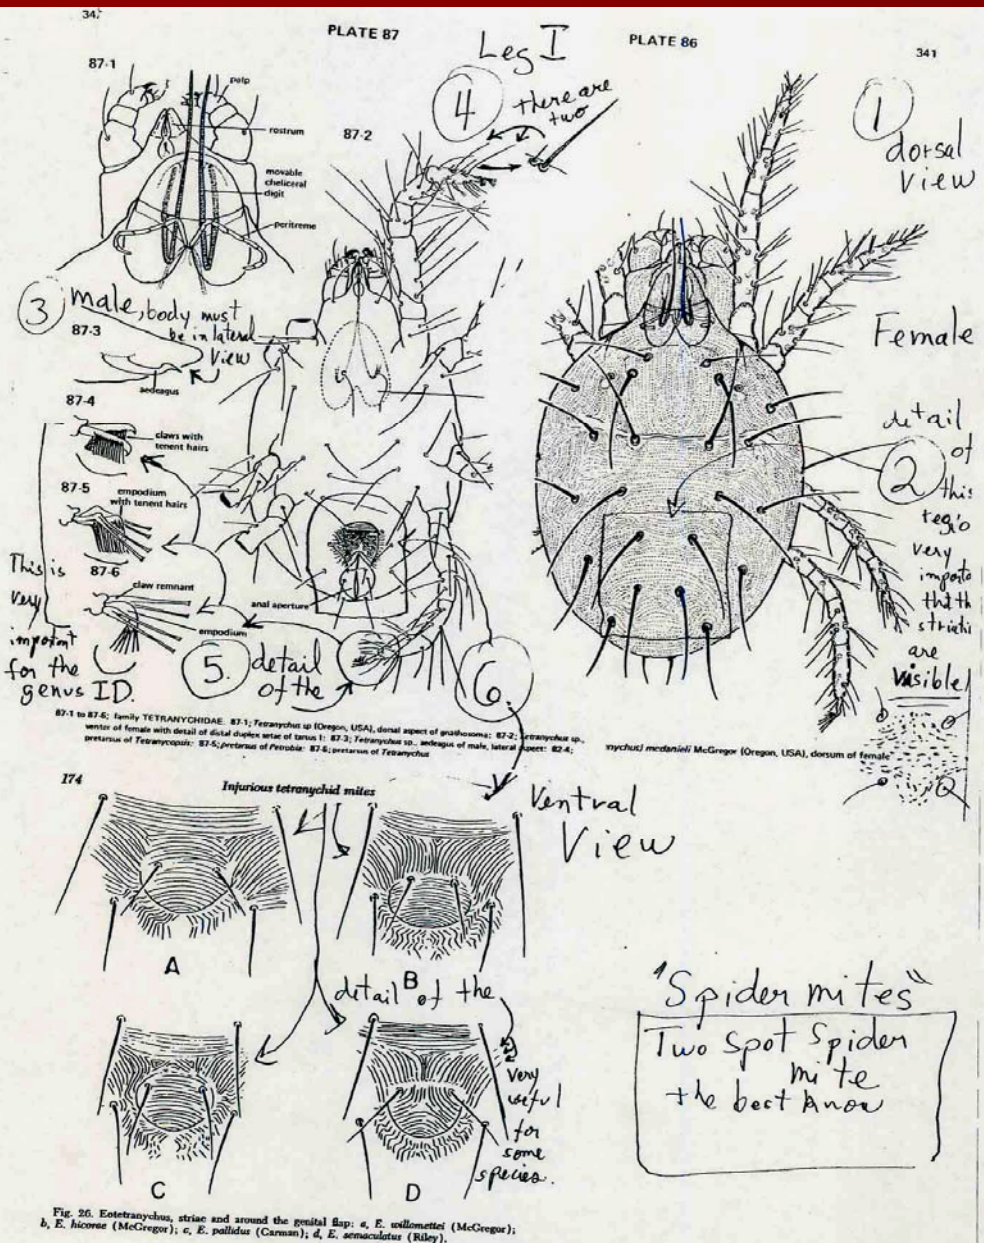 34
PLATE 87
PLATE 86
341
Leg I
4
there are
two
1
dorsal
View
87-1
palp
rostrum
movable
cheliceral
digit
peritreme
87-2
3
male, body must
be in lateral
View
87-3
aedeagus
87-4
claws with
tenent hairs
87-5
empodium
with tenent hairs
87-6
claw remnant
empodium
anal aperture
This is
very
important
for the
genus ID.
5.
detail
of the
6
Female
detail
of
2
this
regio
very
importa
that th
striati
are
visible
87-1 to 87-6; family TETRANYCHIDAE. 87-1; Tetranychus sp (Oregon, USA), dorsal aspect of gnathosoma: 87-2; Tetranychus sp.,
venter of female with detail of distal duplex setae of tarsus I: 87-3; Tetranychus sp., aedeagus of male, lateral aspect: 82-4;
pretarsus of Tetranycopsis: 87-5; pretarsus of Petrobia: 87-6; pretarsus of Tetranychus
nychus) mcdanieli McGregor (Oregon, USA), dorsum of female
174
Injurious tetranychid mites
Ventral
View
A
B
detail of the
C
D
very
useful
for
some
species.
"Spider mites"
Two spot spider
mite
the best know
Fig. 26. Eotetranychus, striae and around the genital flap: a, E. willamettei (McGregor);
b, E. hicorae (McGregor); c, E. pallidus (Garman); d, E. semaculatus (Riley).